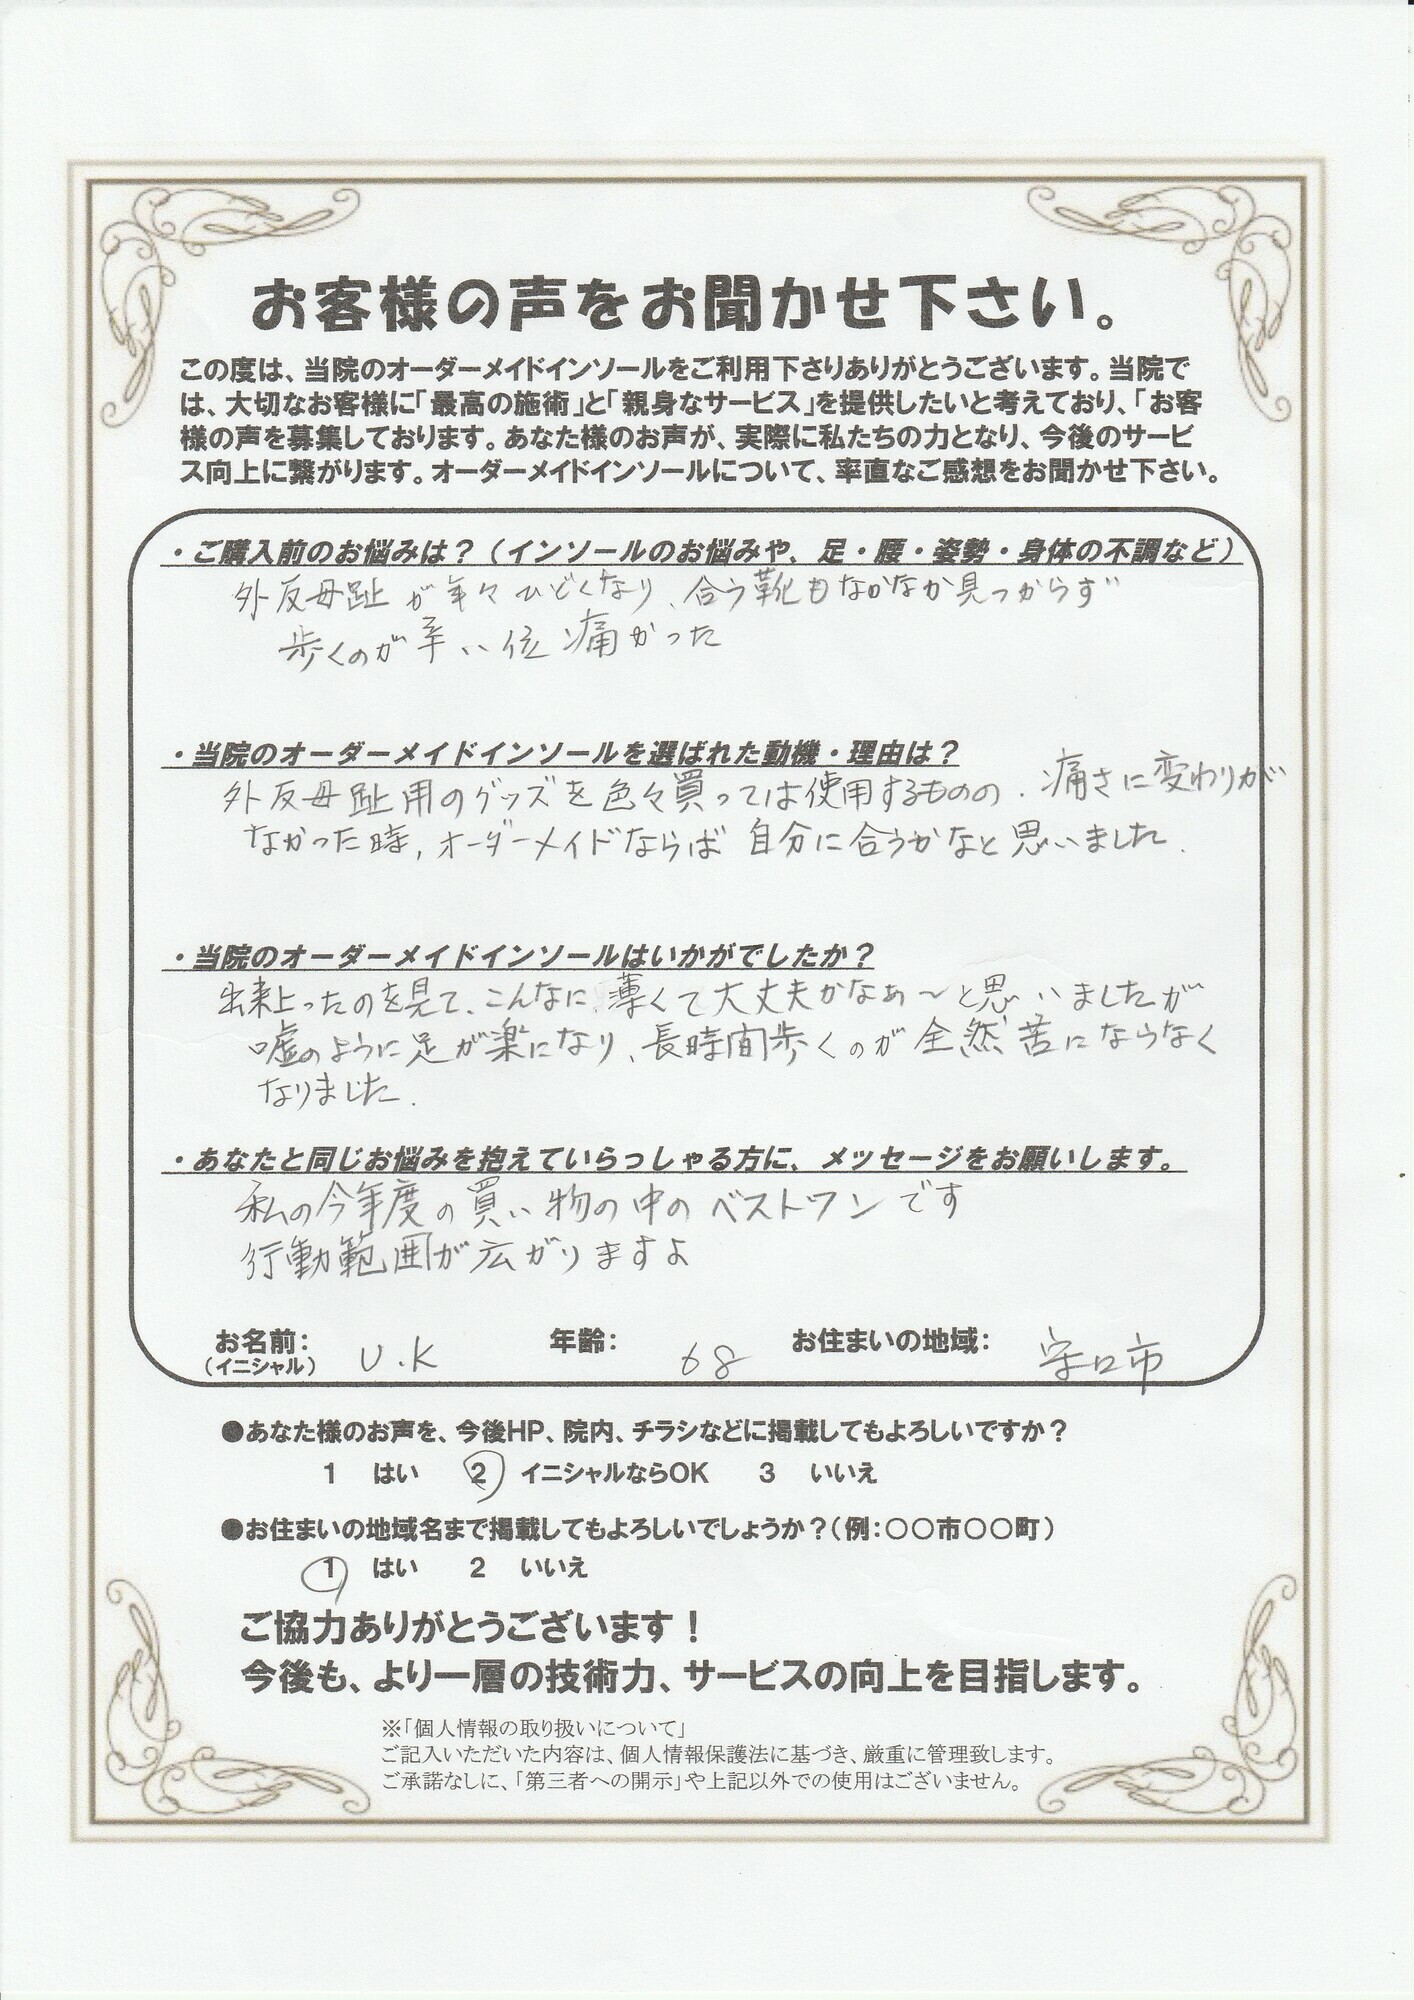 お客様の声をお聞かせ下さい。
この度は、当院のオーダーメイドインソールをご利用下さりありがとうございます。当院で
は、大切なお客様に「最高の施術」と「親身なサービス」を提供したいと考えており、「お客
様の声を募集しております。あなた様のお声が、実際に私たちの力となり、今後のサービ
ス向上に繋がります。オーダーメイドインソールについて、率直なご感想をお聞かせ下さい。
・ご購入前のお悩みは？（インソールのお悩みや、足・腰・姿勢・身体の不調など）
外反母趾が年々ひどくなり、合う靴もなかなか見つからず
歩くのが辛い位痛かった
・当院のオーダーメイドインソールを選ばれた動機・理由は？
外反母趾用のグッズを色々買っては使用するものの、痛さに変わりが
なかった時，オーダーメイドならば自分に合うかなと思いました．
・当院のオーダーメイドインソールはいかがでしたか？
出来上ったのを見て、こんなに薄くて大丈夫かなぁ～と思いましたが
嘘のように足が楽になり、長時間歩くのが全然苦にならなく
なりました．
・あなたと同じお悩みを抱えていらっしゃる方に、メッセージをお願いします。
私の今年度の買い物の中のベストワンです
行動範囲が広がりますよ
お名前： U.K 年齢： 68 お住まいの地域： 守口市
（イニシャル）
●あなた様のお声を、今後HP、院内、チラシなどに掲載してもよろしいですか？
1 はい 2 イニシャルならOK 3 いいえ
●お住まいの地域名まで掲載してもよろしいでしょうか？（例：〇〇市〇〇町）
1 はい 2 いいえ
ご協力ありがとうございます！
今後も、より一層の技術力、サービスの向上を目指します。
※「個人情報の取り扱いについて」
ご記入いただいた内容は、個人情報保護法に基づき、厳重に管理致します。
ご承諾なしに、「第三者への開示」や上記以外での使用はございません。